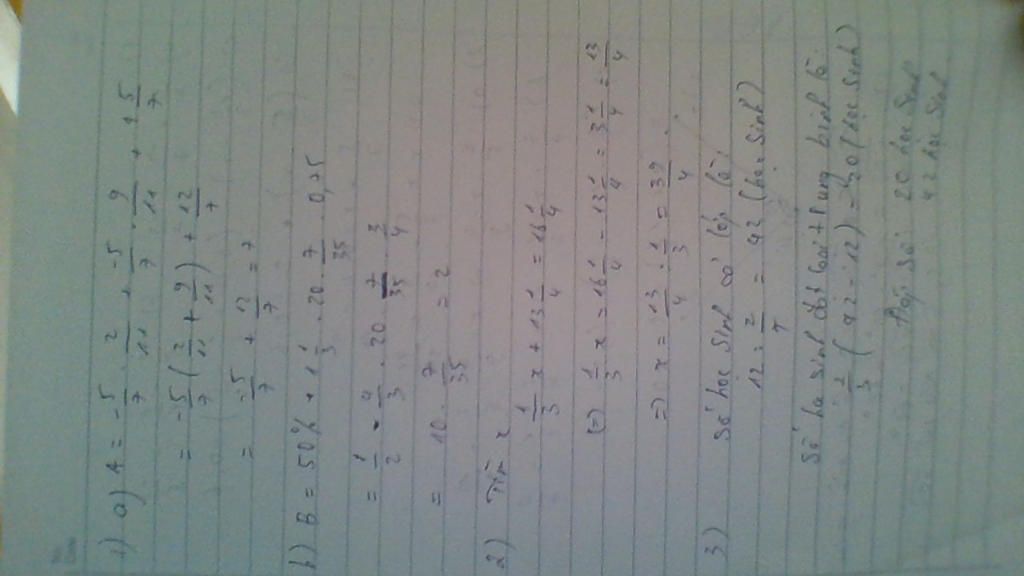 1) a) A = -5/7 . 2/11 + -5/7 . 9/11 + 1 5/7
= -5/7 (2/11 + 9/11) + 12/7
= -5/7 + 12/7 = 7
b) B = 50% . 1 1/3 . 20 . 7/35 . 0,75
= 1/2 . 4/3 . 20 . 7/35 . 3/4
= 10 . 7/35 = 2
2) Tìm x
1/3 x + 13 1/4 = 16 1/4
(=) 1/3 x = 16 1/4 - 13 1/4 = 3 1/4 = 13/4
=) x = 13/4 : 1/3 = 39/4
3) Số học sinh có lớp là
12 : 2/7 = 42 (học sinh)
Số học sinh đạt loại trung bình là
2/3 (42 - 12) = 20 (học sinh)
Đáp số 20 học sinh
42 học sinh